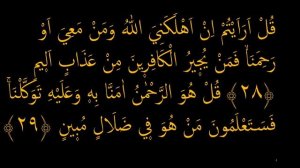 قُلْ اَرَاَيْتُمْ اِنْ اَهْلَكَنِيَ اللّٰهُ وَمَنْ مَعِيَ اَوْ
رَحِمَنَاۙ فَمَنْ يُج۪يرُ الْكَافِر۪ينَ مِنْ عَذَابٍ اَل۪يمٍ
﴿٢٨﴾ قُلْ هُوَ الرَّحْمٰنُ اٰمَنَّا بِه۪ وَعَلَيْهِ تَوَكَّلْنَاۚ
فَسَتَعْلَمُونَ مَنْ هُوَ ف۪ي ضَلَالٍ مُب۪ينٍ ﴿٢٩﴾